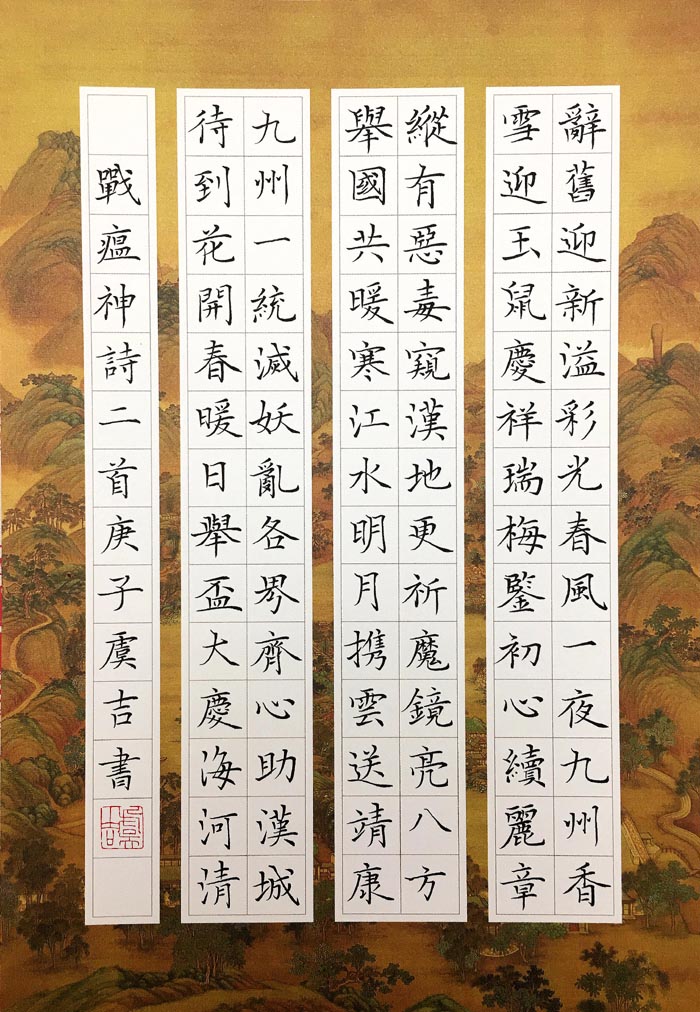 辭舊迎新溢彩光春風一夜九州香
雪迎玉鼠慶祥瑞梅鑒初心續麗章
縱有惡毒窺漢地更祈魔鏡亮八方
舉國共暖寒江水明月携雲送靖康
九州一統滅妖亂各界齊心助漢城
待到花開春暖日舉盃大慶海河清
戰瘟神詩二首庚子虞吉書